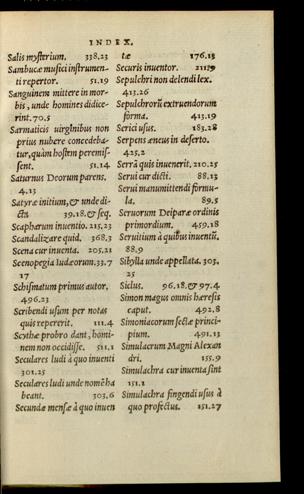 INDEX.
Salis mysterium. 338.23
Sambucæ musici instrumen-
ti repertor. 51.19
Sanguinem mittere in mor-
bis, unde homines didice-
rint. 70.5
Sarmaticis uirginibus non
prius nubere concedeba-
tur, quàm hostem peremis-
sent. 51.14
Saturnus Deorum parens.
4.13
Satyræ initium, & unde di-
cta 39.18. & seq.
Scapharum inuentio. 215.23
Scandalizare quid. 368.3
Scena cur inuenta. 205.21
Scenopegia Iudæorum. 33.7
17
Schismatum primus autor.
496.23
Scribendi usum per notas
quis repererit. 111.4
Scythæ probro dant, homi-
nem non occidisse. 511.1
Seculares ludi à quo inuenti
301.25
Seculares ludi unde nomē ha
beant. 303.6
Secundæ mensæ à quo inuen
tæ 176.13
Securis inuentor.
Sepulchri non delendi lex.
413.26
Sepulchrorū extruendorum
forma. 413.19
Serici usus. 183.28
Serpens æneus in deserto.
425.2
Serrā quis inuenerit. 210.25
Serui cur dicti. 88.13
Serui manumittendi formu-
la. 89.5
Seruorum Deiparæ ordinis
primordium. 459.18
Seruitium à quibus inuentū.
88.9
Sibylla unde appellata. 303.
25
Siclus. 96.18. & 97.4
Simon magus omnis hæresis
caput. 492.8
Simoniacorum sectæ princi-
pium. 491.13
Simulacrum Magni Alexan
dri. 155.9
Simulachra cur inuenta sint
151.1
Simulachra fingendi usus à
quo profectus. 151.27